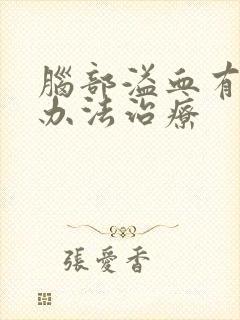 腦部溢血有
办法治療
張愛香